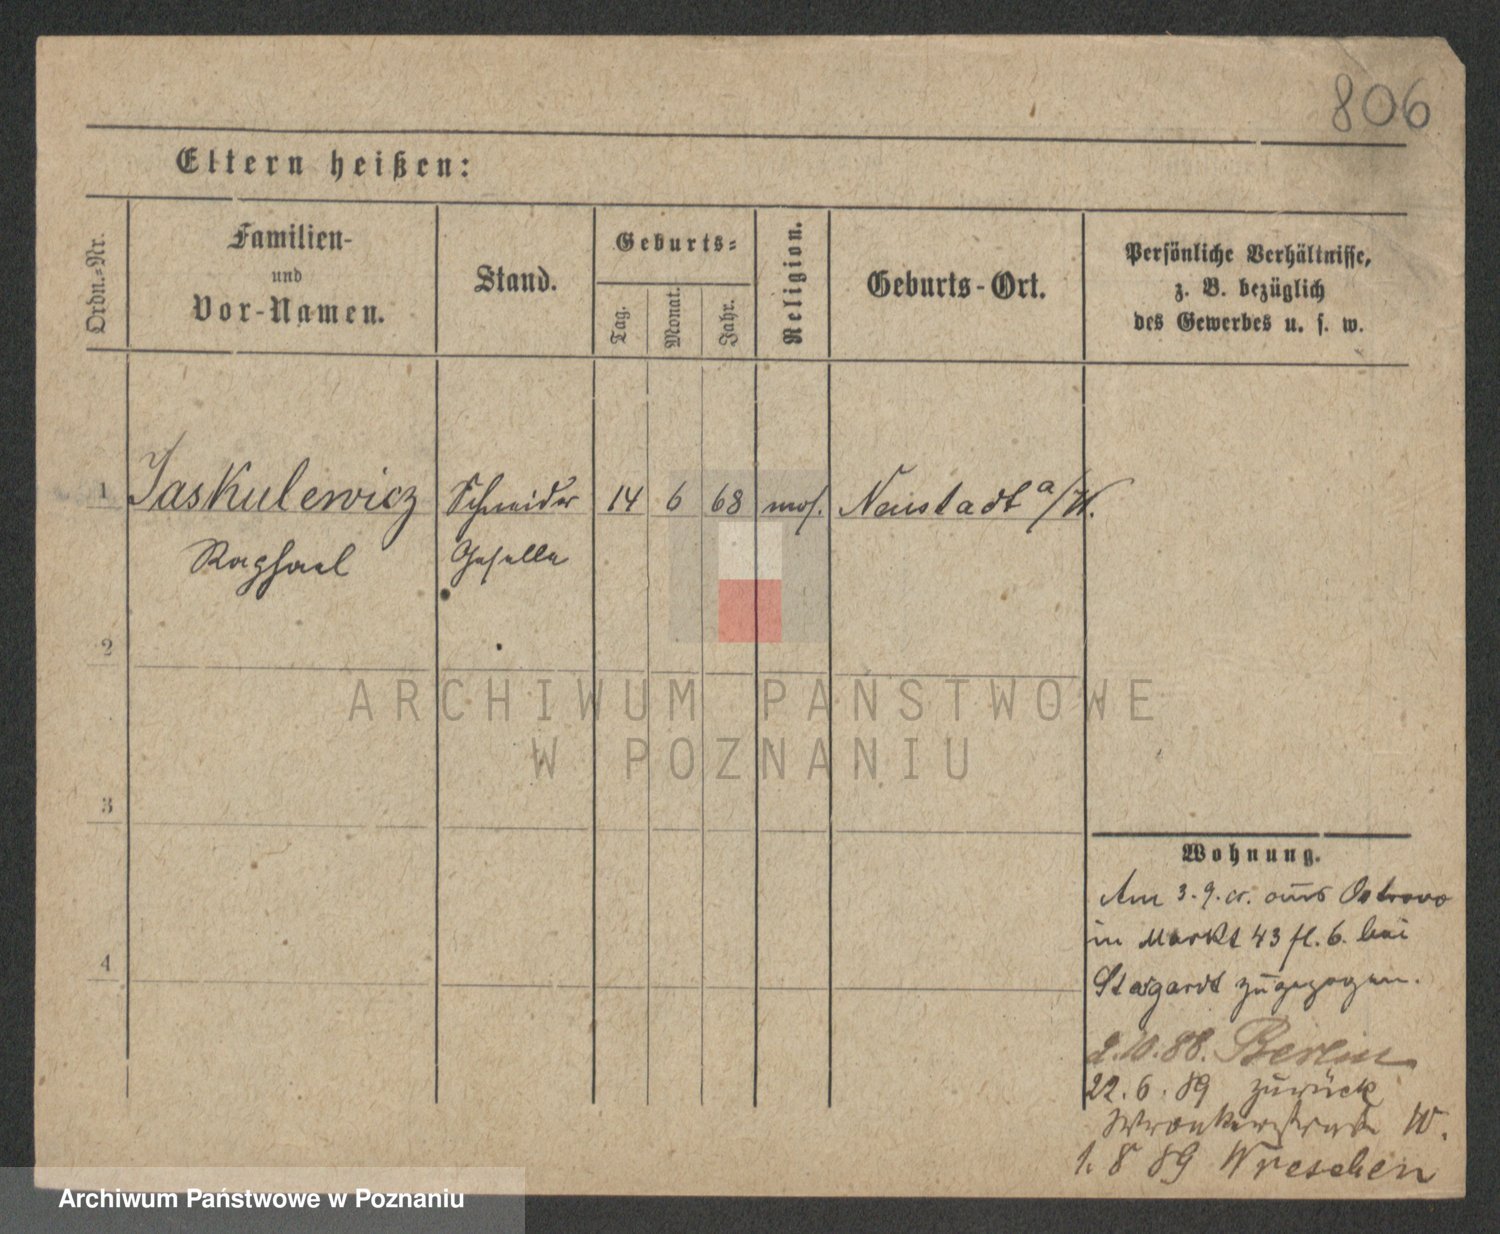 806
Eltern heißen:
Ordn.=Nr.
Familien-
und
Vor-Namen.
Stand.
Geburts=
Tag.
Monat.
Jahr.
Religion.
Geburts-Ort.
Persönliche Verhältnisse,
z. B. bezüglich
des Gewerbes u. s. w.
1 Jaskulewicz Schneider 14 6 68 mos. Neustadt a/W.
Raphael Geselle
2
3
4
Wohnung.
Am 3.9. cr. aus Ostrowo
in Markt 43 fl. 6. bei
Stargardt zugezogen.
2.10.88. Berlin
22.6.89 zurück
Wronkerstraße W.
1. 8 89 Wreschen
ARCHIWUM PAŃSTWOWE
W POZNANIU
Archiwum Państwowe w Poznaniu